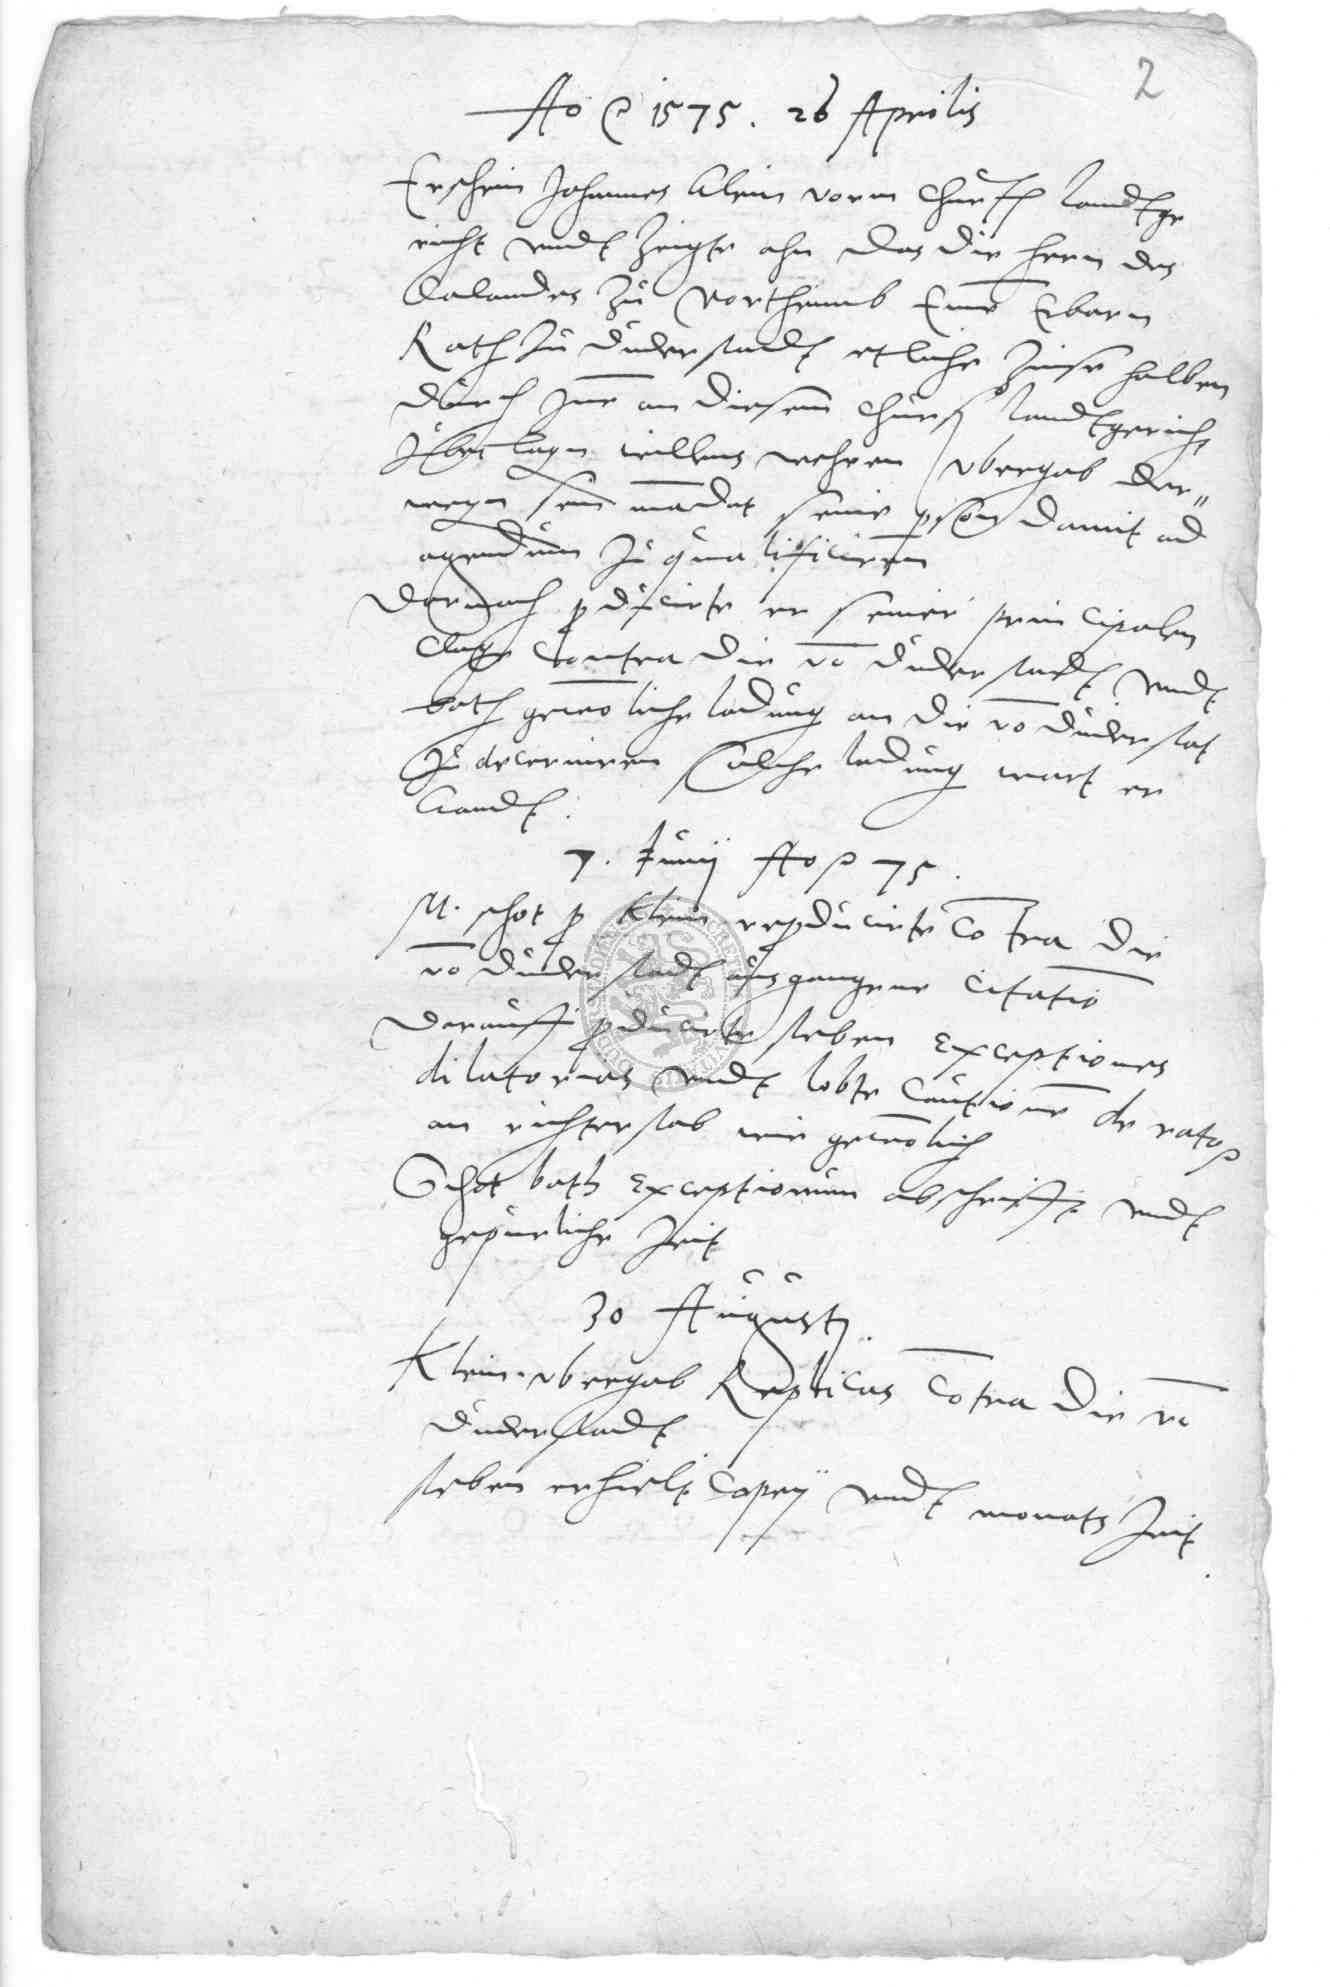 2
Ao p 1575. 26 Aprilis
Erschein Johannes Klein vorm Churf landtge
richt vndt Zeigte ahn das die hern des
Calandes Zu Northeimb Eine Erbarn
Rath Zu Duderstadt etliche Zinse halben
durch Jne an diesem Churf landtgericht
Zubeklagen willens wehren vbergab der„
wegen sein madat seine pson damit ad
agendum Zu qualificiren
Darnach pducirte er seiner principalen
Clage Contra die vo Duderstadt vndt
bath gewöliche ladung an die vo Duderstat
Zu decerniren Solche ladung wart er
kandt.
7. Junij Ao p 75.
M. schot p Klein repducirte Cotra die
vo Duderstadt ausgangene Citatio
Darauff pducirte steben Exceptiones
dilatorias vndt lobte Cautione de rato p
an richterstab wie gewölich
Schot bath Exceptionum abschrifft vndt
gepurliche Zeit
30 Augusti.
Klein vbergab Replicas Cotra die vo
Duderstadt
steben erhielt Copeij vndt monats Zeit.